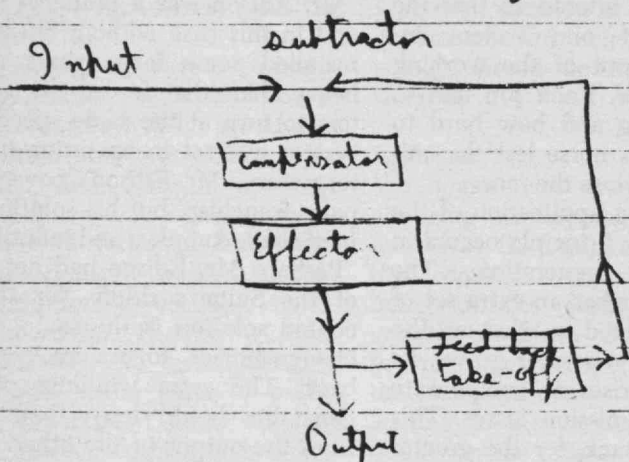 Input
subtractor
Compensator
Effector
Feed back
take off
Output